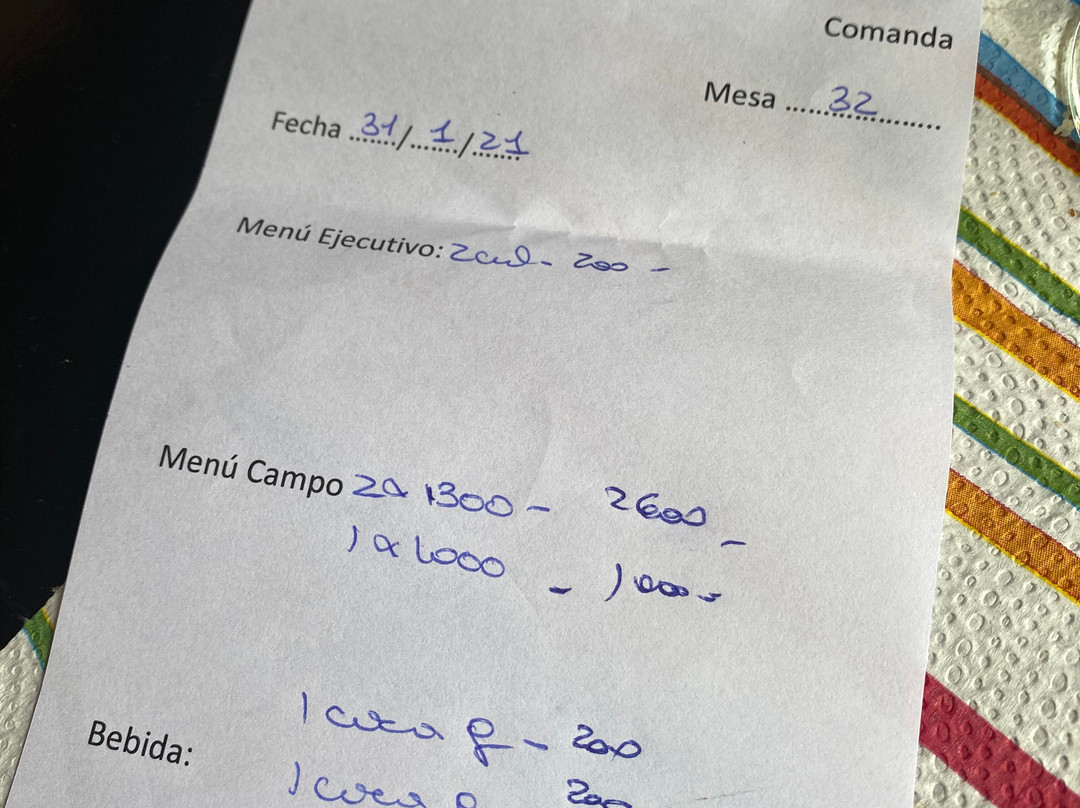 Comanda
Mesa ..... 32 .....
Fecha 31/ 1 /21
Menú Ejecutivo: 2 cub - 200 -
Menú Campo 2 a 1300 - 2600 -
1 a 1000 - 1000 -
1 coca g - 200
Bebida:
1 coca g 200